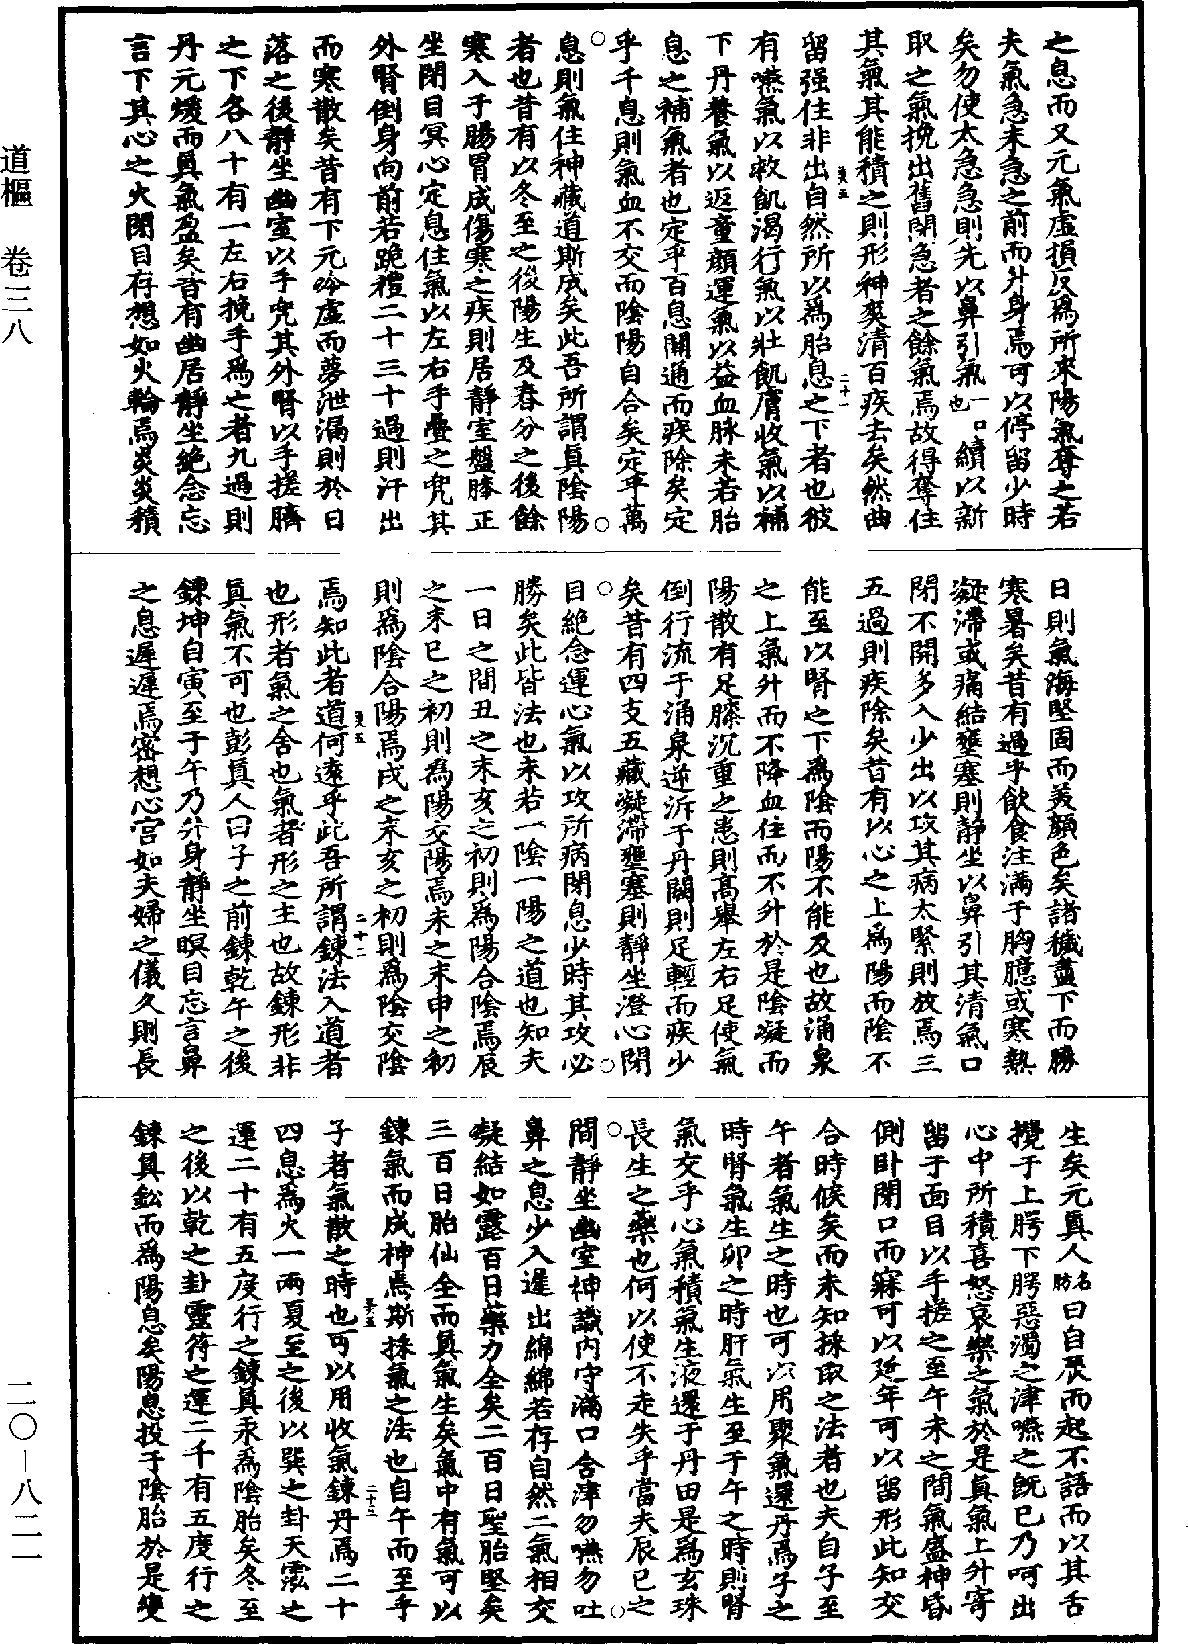 道樞　卷三八
二〇—八二一
之息而又元氣虛損反爲所來陽氣奪之若
夫氣急未急之前而升身焉可以停留少時
矣勿使太急急則先以鼻引氣一口也續以新
取之氣挽出舊閉急者之餘氣焉故得奪住
其氣其能積之則形神爽清百疾去矣然曲
留强住非出自然所以爲胎息之下者也彼
有嚥氣以救飢渴行氣以壯飢膚收氣以補
下丹養氣以返童顔運氣以益血脉未若胎
息之補氣者也定乎百息關通而疾除矣定
乎千息則氣血不交而陰陽自合矣定乎萬
息則氣住神藏道斯成矣此吾所謂真陰陽
者也昔有以冬至之後陽生及春分之後餘
寒入于腸胃成傷寒之疾則居靜室盤膝正
坐閉目冥心定息住氣以左右手疊之兜其
外腎倒身向前若跪禮二十三十過則汗出
而寒散矣昔有下元冷虛而夢泄漏則於日
落之後靜坐幽室以手兜其外腎以手搓臍
之下各八十有一左右挽手爲之者九過則
丹元煖而真氣盈矣昔有幽居靜坐絶念忘
言下其心之火閉目存想如火輪焉炎炎積
日則氣海堅固而美顔色矣諸穢盡下而勝
寒暑矣昔有過乎飲食注满于胸臆或寒熱
凝滯或痛結壅塞則靜坐以鼻引其清氣口
閉不開多入少出以攻其病太緊則放焉三
五過則疾除矣昔有以心之上爲陽而陰不
能至以腎之下爲陰而陽不能及也故涌泉
之上氣升而不降血住而不升於是陰凝而
陽散有足膝沉重之患則高舉左右足使氣
倒行流于涌泉逆泝于丹闕則足輕而疾少
矣昔有四支五藏凝滯壅塞則靜坐澄心閉
目絶念運心氣以攻所病閉息少時其攻必
勝矣此皆法也未若一陰一陽之道也知夫
一日之間丑之末亥之初則爲陽合陰焉辰
之末巳之初則爲陽交陽焉未之末申之初
則爲陰合陽焉戌之末亥之初則爲陰交陰
焉知此者道何遠乎此吾所謂鍊法入道者
也形者氣之舍也氣者形之主也故鍊形非
真氣不可也彭真人曰子之前鍊乾午之後
鍊坤自寅至于午乃升身靜坐瞑目忘言鼻
之息遲遲焉密想心宮如夫婦之儀久則長
生矣元真人名昉曰自辰而起不語而以其舌
攪于上腭下腭惡濁之津嚥之既已乃呵出
心中所積喜怒哀樂之氣於是真氣上升寄
留于面目以手搓之至午未之間氣盛神昏
側卧閉口而寐可以延年可以留形此知交
合時候矣而未知採取之法者也夫自子至
午者氣生之時也可以用聚氣還丹焉子之
時腎氣生卯之時肝氣生至于午之時則腎
氣交乎心氣積氣生液還于丹田是爲玄珠
長生之藥也何以使不走失乎當夫辰巳之
間靜坐幽室神識內守滿口含津勿嚥勿吐
鼻之息少入遲出綿綿若存自然二氣相交
凝結如露百日藥力全矣二百日聖胎堅矣
三百日胎仙全而真氣生矣氣中有氣可以
鍊氣而成神焉斯採氣之法也自午而至乎
子者氣散之時也可以用收氣鍊丹焉二十
四息爲火一兩夏至之後以巽之卦天澴之
運二十有五度行之鍊真汞爲陰胎矣冬至
之後以乾之卦靈符之運二千有五度行之
鍊真鈆而爲陽息矣陽息投于陰胎於是變